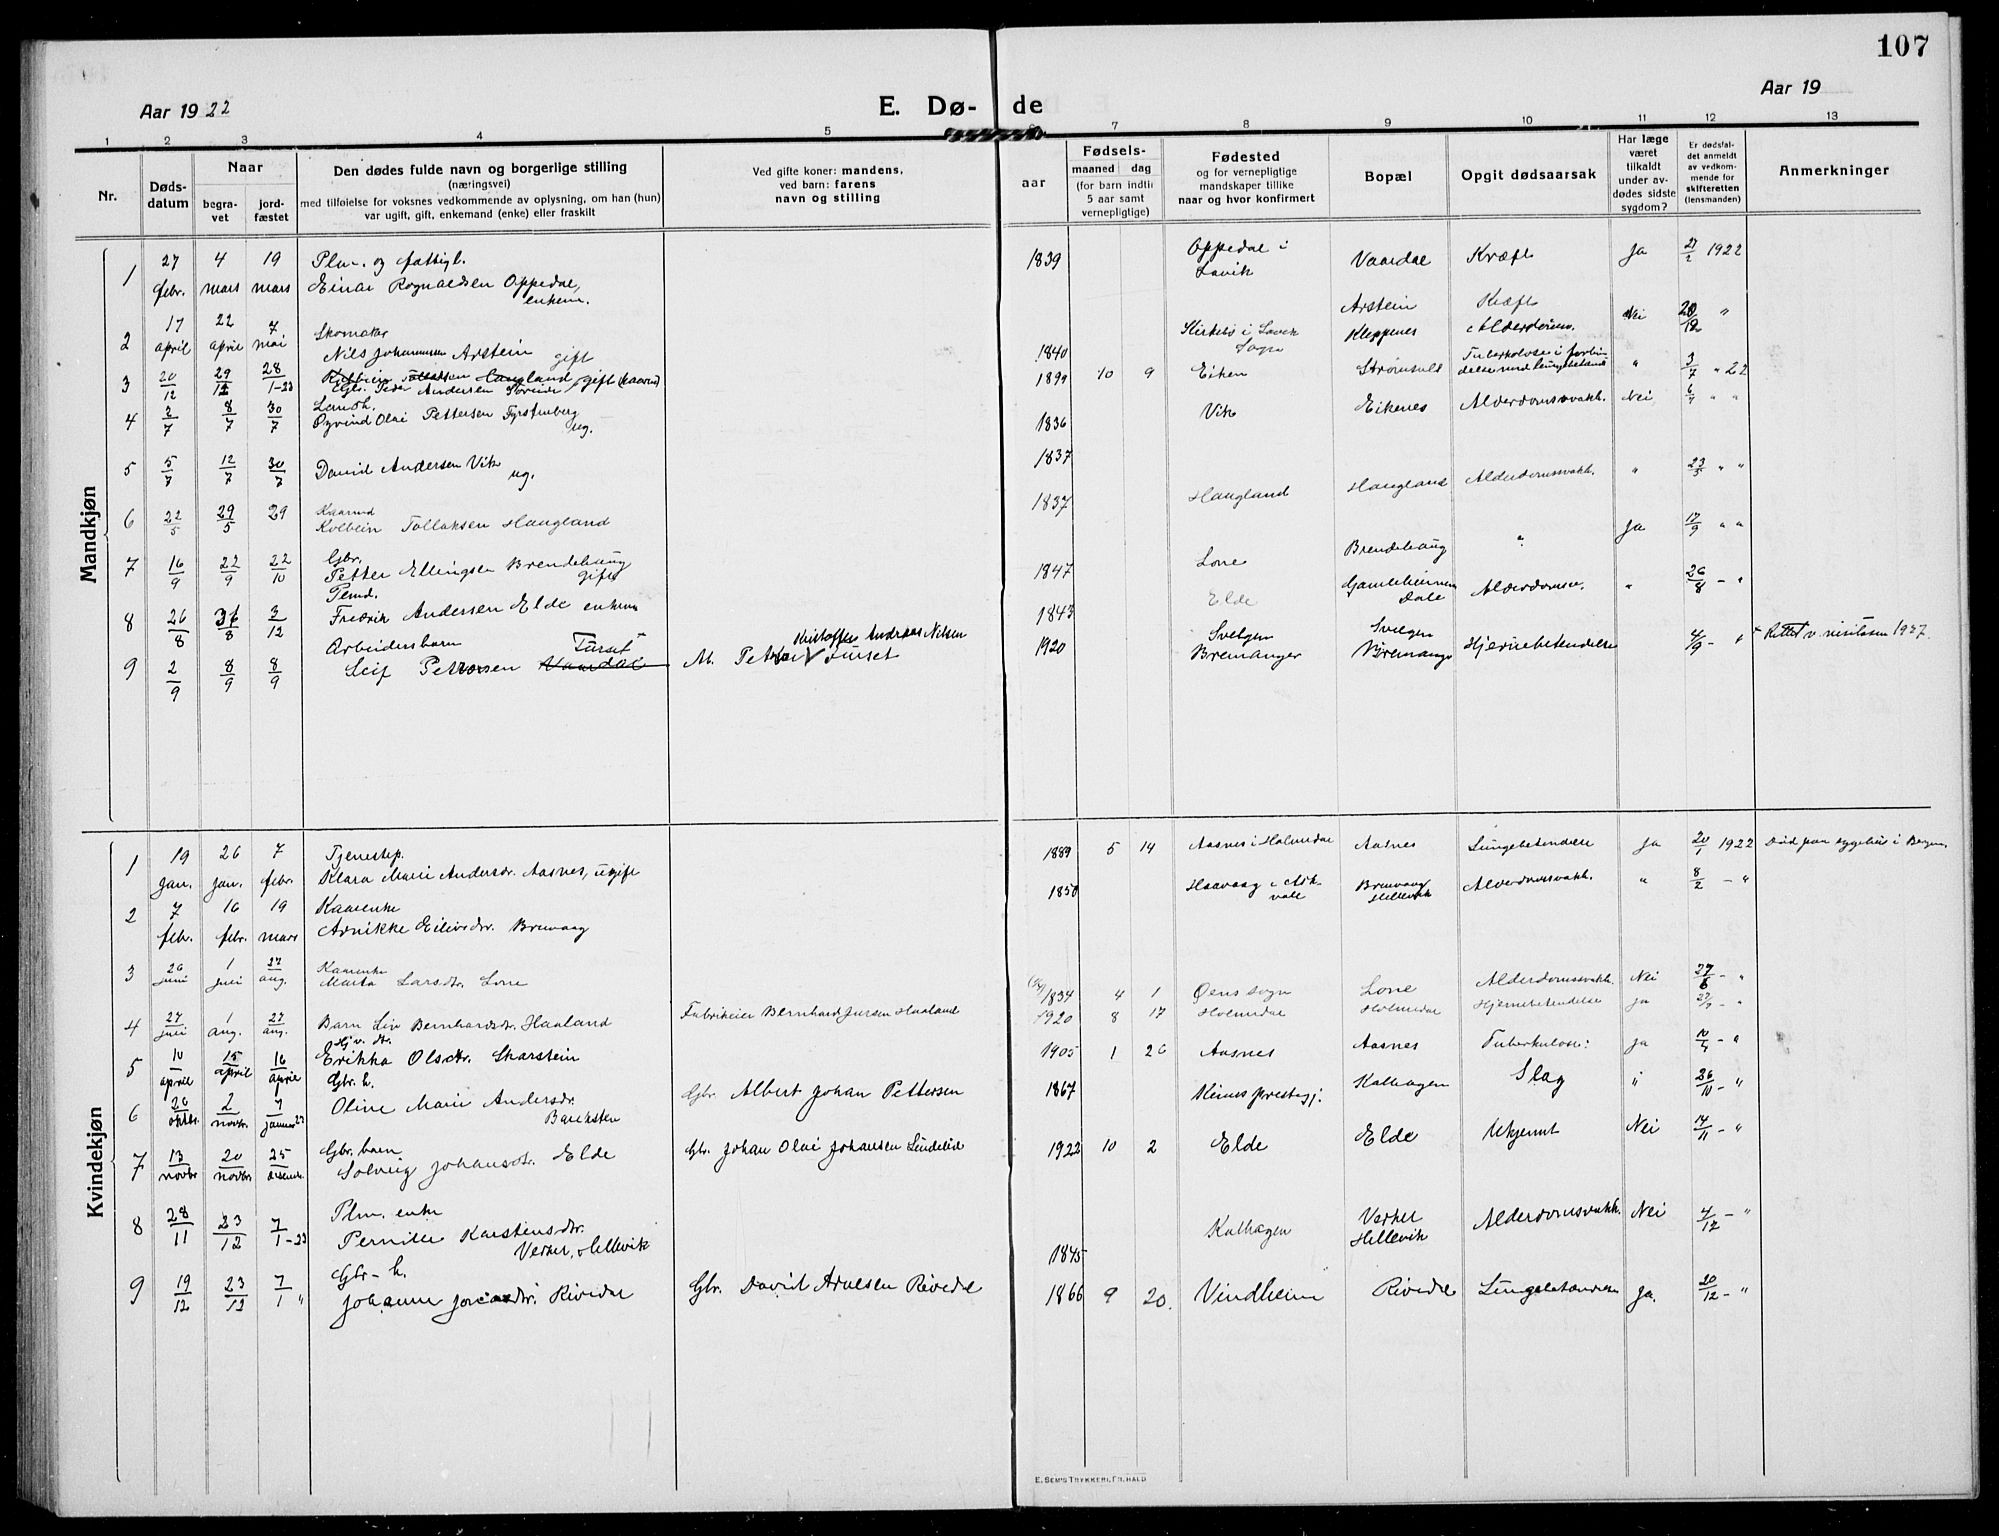 107
Aar 1922
E. Dø- de
Aar 19
1 2 3 4 5 6 7 8 9 10 11 12 13
Nr.
Døds-
datum
Naar
begra-
vet
jord-
fæstet
Den dødes fulde navn og borgerlige stilling
(næringsvei)
med tilføielse for voksnes vedkommende av oplysning, om han (hun)
var ugift, gift, enkemand (enke) eller fraskilt
Ved gifte koner: mandens,
ved barn: farens
navn og stilling
Fødsels-
aar
maaned dag
(for barn indtil
5 aar samt
vernepligtige)
Fødested
og for vernepligtige
mandskaper tillike
naar og hvor konfirmert
Bopæl
Opgit dødsaarsak
Har læge
været
tilkaldt
under av-
dødes sidste
sygdom?
Er dødsfal-
det anmeldt
av vedkom-
mende for
skifteretten
(lensmanden)
Anmerkninger
Mandkjøn
1 27 febr. 4 mars 19 mars Plm. og fattigl.
Einar Rognaldsen Oppedal, enkem. 1839 Oppedal i Lavik Vaardal Kræft Ja 27/2 1922
2 17 april 22 april 7 mai Skomaker
Nils Johannessen Arstein gift 1840 Kirkebø i Lavik Sogn Arstein Klæppenes Kræft Alderdoms. Nei "
3 20/12 29/12 28/1-23 Kolbein Tollaksen Haugland, gift (kaarm)
Gbr. Peder Andersen gift 1899 10 9 Eiken Tuberkulose i forbindelse med lungebetænd " 3/7 " 22
4 2/7 8/7 30/7 Landh.
Øyvind Olai Pettersen Fyrstenberg ug. 1836 Vik Eikenes Alderdomssvakh. Nei " "
5 5/7 12/7 30/7 David Andersen Vik ug. 1837
6 22/5 29/5 29 Kaarmd
Kolbein Tollaksen Haugland 1837 Haugland Haugland Alderdomssvakh. " 23/5 " "
7 16/9 22/9 22/10 Gbr.
Petter Ellingsen Brendehaug gift 1847 Lone Brendehaug " Ja 17/9 " "
8 26/8 31/8 3/12 Fredrik Andersen Elde enkem 1843 Elde Gamleheimen Dale Alderdomssv. " 26/8 - "
9 2/9 8/9 8/9 Arbeidersbarn
Leif Pettersen Vaardal Furset M. Petter Kristoffer Andreas Nilsen Furset 1920 Svelgen Bremanger Svelgen Bremanger Hjernebetendelse 4/9 - " + Rettet v. visitasen 1927.
Kvindekjøn
1 19 jan. 26 jan. 7 febr. Tjenestep.
Klara Marie Andersdr. Aasnes, ugift 1889 5 14 Aasnes i Holmedal Aasnes Lungebetendelse Ja 20/1 1922 Død paa sygehus i Bergen
2 7 febr. 16 febr. 19 mars Kaarenke
Arnikke Eilivsdr. Bruvaag 1850 Haavaag i Askvoll Bruvaag Hillevik Alderdomssvakh. " 8/2 - "
3 26 juni 1 juli 27 aug. Kaarenke
Marta Larsdtr. Lone 1834 4 1 Øens sogn Lone Alderdomssvakh. Nei 27/6 - "
4 27 juli 1 aug. 27 aug. Barn Liv Bernhardsdr. Haaland Fabrikeier Bernhard Jursen Haaland 1920 8 17 Holmedal Holmedal Hjernebetendelse Ja - "
5 10 april 15 april 16 april Hj.v. dtr.
Erikka Olsdtr. Skarstein 1905 1 26 Aasnes Aasnes Tuberkulose: Ja 10/4 - "
6 26 oktbr. 2 novbr. 7 januar 23 Gbr. h.
Oline Marie Andersdr. Gbr. Albert Johan Pettersen 1867 Kinns prestegj. Kalhagen Slag " 26/10 - "
7 13 novbr 20 novbr 25 Gbr. barn
Solveig Johansdtr. Elde Gbr. Johan Olai Johansen Lindelid 1922 10 2 Elde Elde Ukjennt Nei 14/11 - "
8 28/11 23/12 7/1-23 Plm. enke
Pernille Karstensdtr.
Verket, Hillevik 1845 Kalhagen Verket Hillevik Alderdomssvakh. Nei 4/12 - "
9 19/12 23/12 7/1 " Gbr - h.
Johanne Rivedal Gbr. David Arnesen Rivedal 1866 9 20. Vindheim Rivedal Lungebetændelse Ja. 20/12 - "
E. SEM'S TRYKKERI, FR.HALD